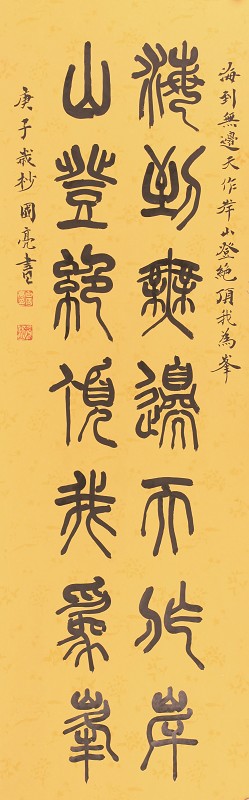 海到無邊天作岸山登絕頂我為峯
海到無邊天作岸
山登絕頂我為峯
庚子歲杪國亮書